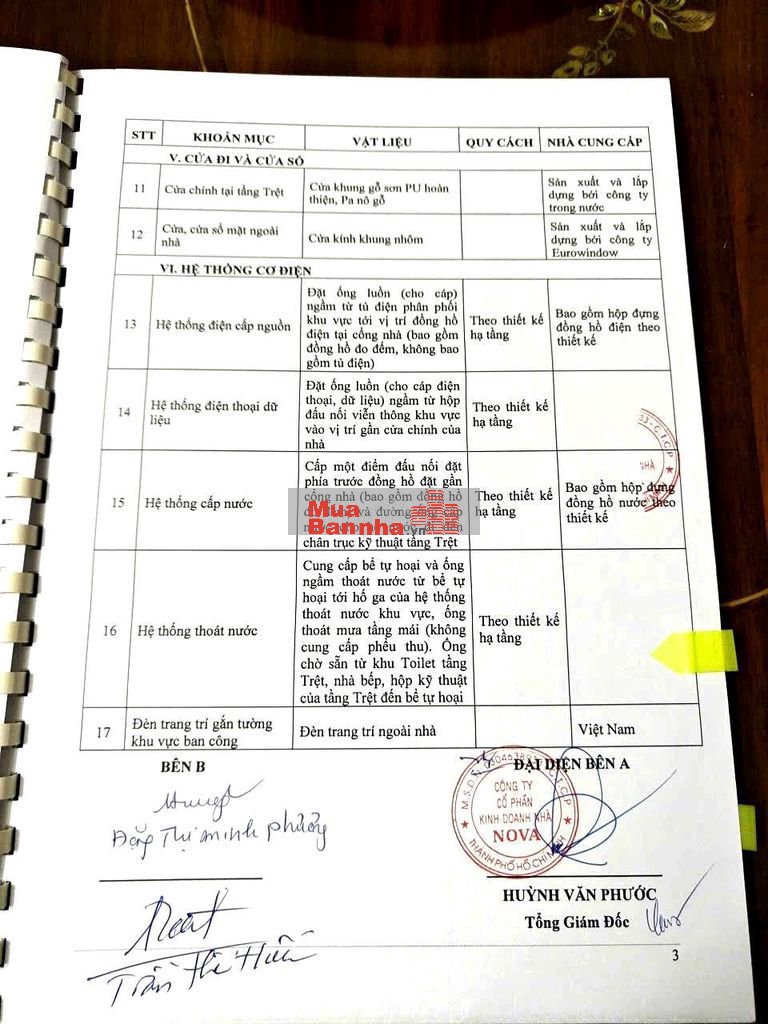 STT KHOẢN MỤC VẬT LIỆU QUY CÁCH NHÀ CUNG CẤP
V. CỬA ĐI VÀ CỬA SỔ
11 Cửa chính tại tầng Trệt
Cửa khung gỗ sơn PU hoàn
thiện, Pa nô gỗ
Sản xuất và lắp
dựng bởi công ty
trong nước
12 Cửa, cửa sổ mặt ngoài
nhà
Cửa kính khung nhôm
Sản xuất và lắp
dựng bởi công ty
Eurowindow
VI. HỆ THỐNG CƠ ĐIỆN
13 Hệ thống điện cấp nguồn
Đặt ống luồn (cho cáp)
ngầm từ tủ điện phân phối
khu vực tới vị trí đồng hồ
điện tại cổng nhà (bao gồm
đồng hồ đo đếm, không bao
gồm tủ điện)
Theo thiết kế
hạ tầng
Bao gồm hộp đựng
đồng hồ điện theo
thiết kế
14 Hệ thống điện thoại dữ
liệu
Đặt ống luồn (cho cáp điện
thoại, dữ liệu) ngầm từ hộp
đấu nối viễn thông khu vực
vào vị trí gần cửa chính của
nhà
Theo thiết kế
hạ tầng
15 Hệ thống cấp nước
Cấp một điểm đấu nối đặt
phía trước đồng hồ đặt gần
cổng nhà (bao gồm đồng hồ
và đường cấp
chân trục kỹ thuật tầng Trệt
Theo thiết kế
hạ tầng
Bao gồm hộp đựng
đồng hồ nước theo
thiết kế
16 Hệ thống thoát nước
Cung cấp bể tự hoại và ống
ngầm thoát nước từ bể tự
hoại tới hố ga của hệ thống
thoát nước khu vực, ống
thoát mưa tầng mái (không
cung cấp phễu thu). Ống
chờ sẵn từ khu Toilet tầng
Trệt, nhà bếp, hộp kỹ thuật
của tầng Trệt đến bể tự hoại
Theo thiết kế
hạ tầng
17 Đèn trang trí gắn tường
khu vực ban công
Đèn trang trí ngoài nhà
Việt Nam
Mua
Bannha.vn
C.T.C.P
NHÀ
BÊN B
ĐẠI DIỆN BÊN A
M.S.D.N C.T.C.P
CÔNG TY
CỔ PHẦN
KINH DOANH NHÀ
NOVA
THÀNH PHỐ HỒ CHÍ MINH
Đặng Thị minh phưởng
HUỲNH VĂN PHƯỚC
Tổng Giám Đốc
Trần Thị Hiền
3